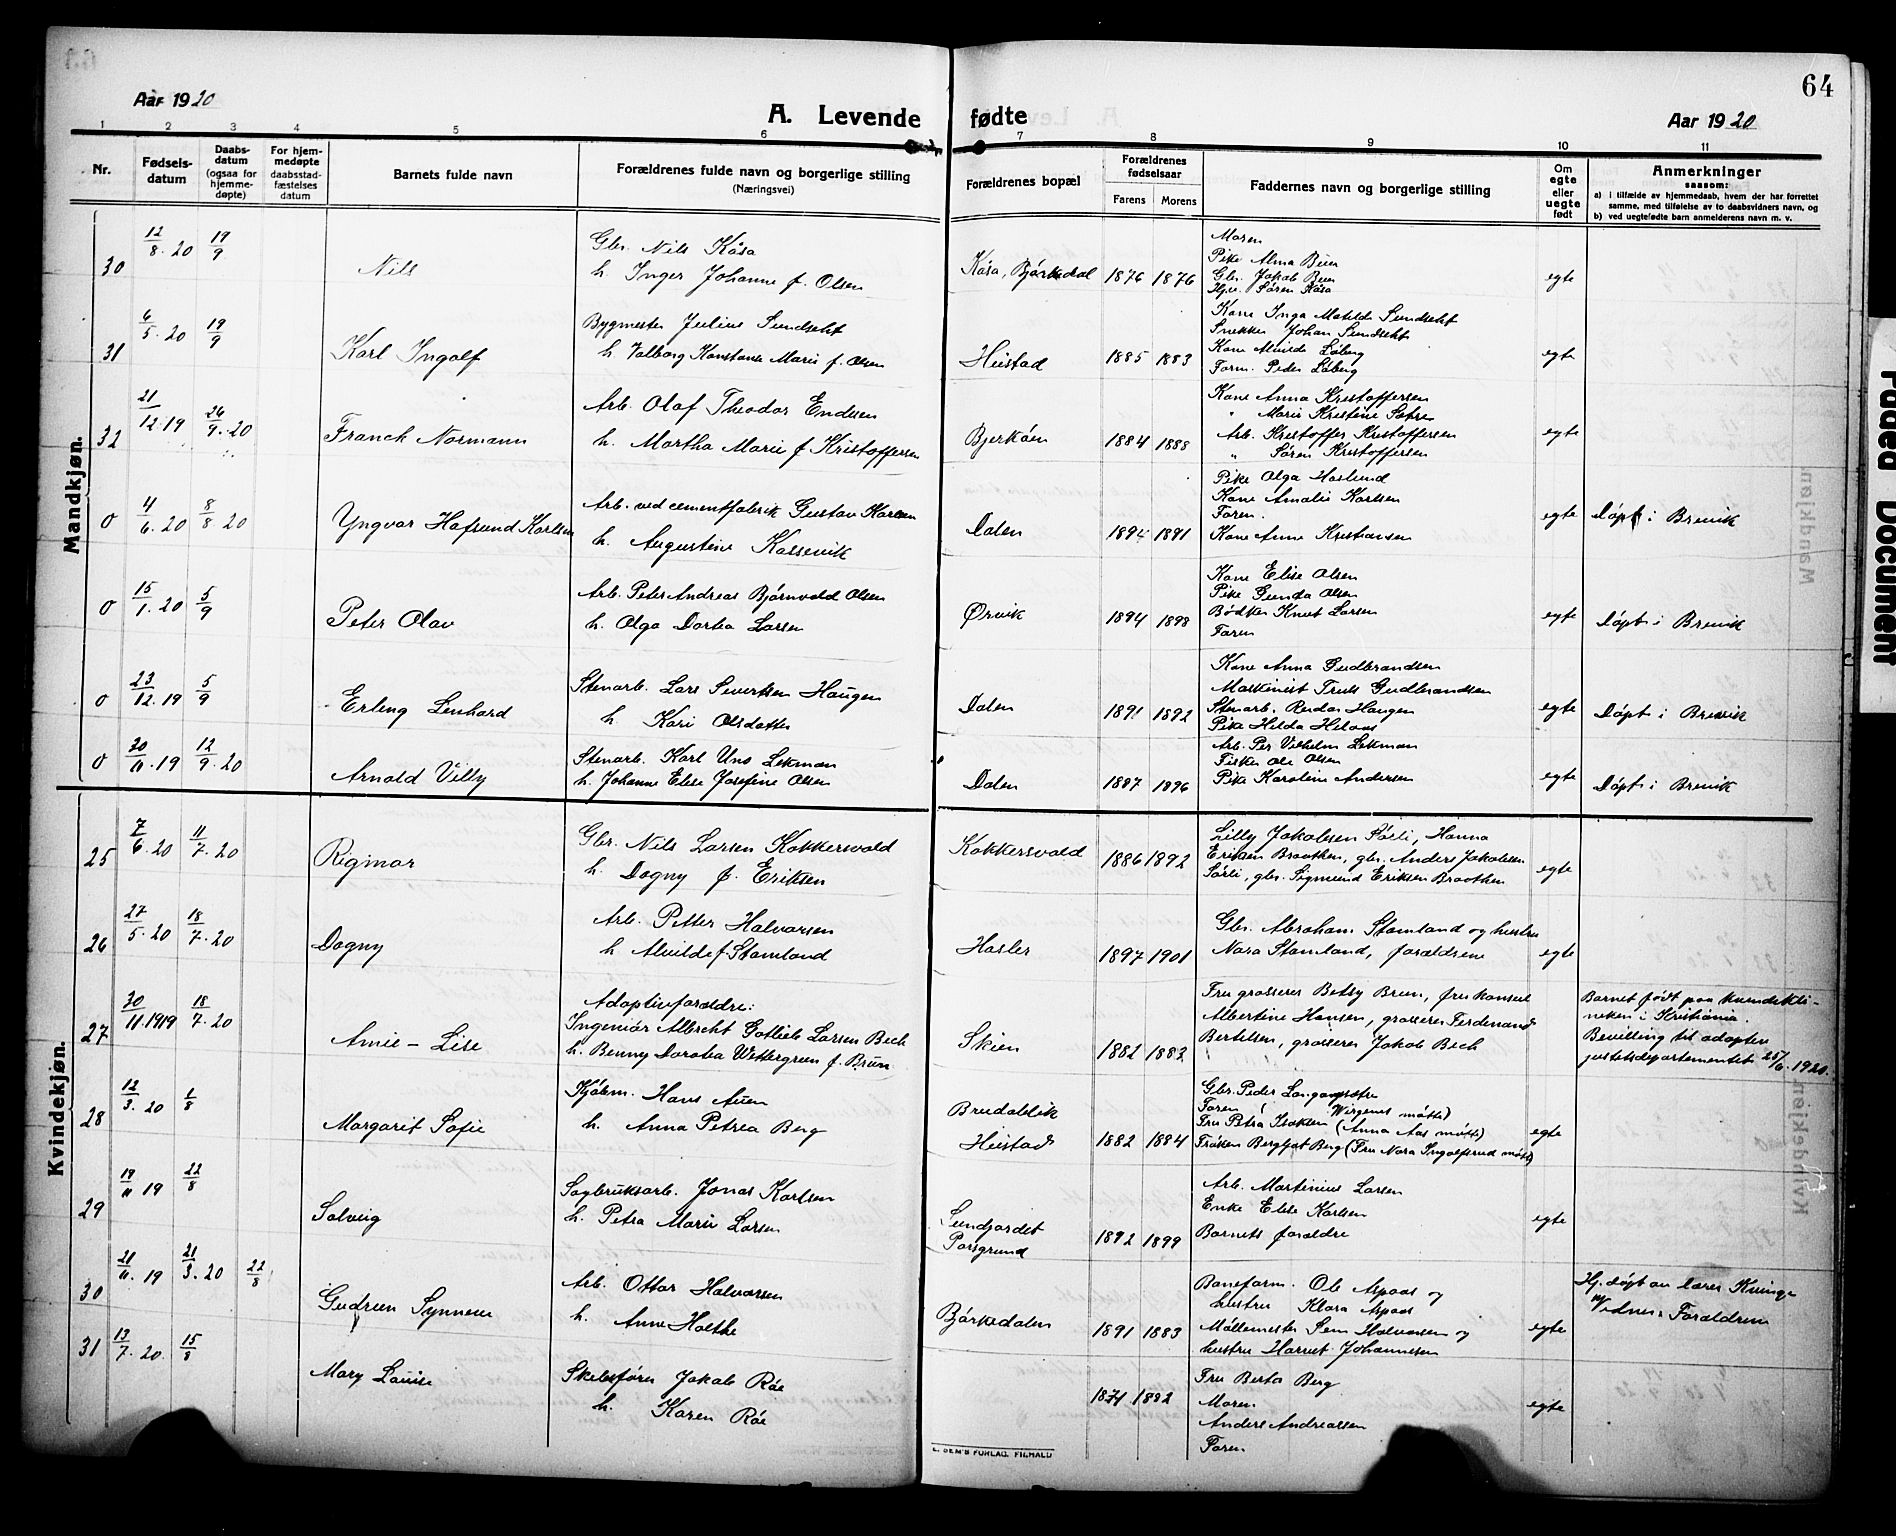 64
Aar 1920
A. Levende fødte
Aar 1920
1 2 3 4 5 6 7 8 9 10 11
Nr.
Fødsels-
datum
Daabs-
datum
(ogsaa for
hjemme-
døpte)
For hjem-
medøpte
daabsstad-
fæstelses
datum
Barnets fulde navn
Forældrenes fulde navn og borgerlige stilling
(Næringsvei)
Forældrenes bopæl
Forældrenes
fødselsaar
Farens Morens
Faddernes navn og borgerlige stilling
Om
egte
eller
uegte
født
Anmerkninger
saasom:
a) i tilfælde av hjemmedaab, hvem der har forrettet
samme, med tilføielse av to daabsvidners navn, og
b) ved uegtefødte barn anmelderens navn m. v.
Mandkjøn.
30 12/8.20 19/9 Nils
Gbr. Nils Kåsa
h. Inger Johanne f. Olsen
Kåsa, Bjørkedal 1876 1876
Moren
Pike Alma Buer
Gbr. Jakob Buer
Søren Kåsa
egte
31 6/5.20 19/9 Karl Ingolf
Bygmester Julius Sundsett
h. Valborg Konstanse Marie f. Olsen
Heistad 1885 1883
Kone Inga Matilde Sundsett
Snekker Johan Sundsett
Kone Alvilde Løberg
Form. Peder Løberg
egte
32 21/12.19 26/9.20 Franck Normann
Arb. Olaf Theodor Endesen
h. Martha Marie f. Kristoffersen
Bjerkøen 1884 1888
Kone Anna Kristoffersen
" Marie Kristine Sætre
Arb. Kristoffer Kristoffersen
" Søren Kristoffersen
egte
0 4/6.20 8/8 20 Yngvar Hafsund Karlsen
Arb. ved cementfabrik Gustav Karlsen
h. Augustine Kalsevik
Dalen 1894 1891
Pike Olga Haslund
Kone Amalie Karlsen
Faren.
Kone Anne Kristiansen
egte
Døpt i Brevik
0 15/1.20 5/9 Peter Olav
Arb. Peter Andreas Bjørnvald Olsen
h. Olga Dortea Larsen
Ørvik 1894 1898
Kone Elise Olsen
Pike Gunda Olsen
Bødker Knut Larsen
Faren
egte
Døpt i Brevik
0 23/12.19 5/9 Erling Lenhard
Stenarb. Lars Sivertsen Haugen
h. Kari Olsdatter
Dalen 1891 1892
Kone Anna Gudbrandsen
Maskinist Truls Gudbrandsen
Stenarb. Reidar Haugen
Pike Hilda Helaas
egte
Døpt i Brevik
0 30/11.19 12/9.20 Arnold Villy
Stenarb. Karl Uno Lekman
h. Johanne Elise Josefine Olsen
Dalen 1887 1896
Arb. Per Vilhelm Lekman
Fisker Ole Olsen
Pike Karoline Andersen
egte
Døpt i Brevik
Kvindekjøn.
25 7/6.20 11/7.20 Rigmor
Gbr. Nils Larsen Kokkersvold
h. Dagny f. Eriksen
Kokkersvold 1886 1892
Lilly Jakobsen Sørli, Hanna
Eriksen Braathen, gbr. Anders Jakobsen
Sørli, gbr. Sigmund Eriksen Braathen
egte
26 27/5.20 18/7.20 Dagny
Arb. Petter Halvorsen
h Alvilde f. Stamland
Hasler 1897 1901
Gbr. Abraham Stamland og hustru
Nora Stamland, forældrene
egte
27 30/11.1919 18/7.20 Amie-Lise
Adoptivforældre:
Ingeniør Albrecht Gotlieb Larsen Bech
h. Benny Dorotea Wettergreen f. Bruun
Skien 1882 1883
Fru grosserer Betsy Bruun, fru konsul
Albertine Hansen, grosserer Ferdinand
Bertelsen, grosserer Jakob Bech
Barnet født paa kvindekli-
niken i Kristiania.
Bevilling til adoption
justitsdepartementet 25/6.1920.
28 12/3.20 1/8 Margarit Sofie
Kjøbm. Hans Auen
h. Anna Petrea Berg
Brudablik
Heistad 1882 1884
Gbr. Peder Langangsætre
Faren
Fru Petra Isaksen (Anna Aas møtte)
Frøken Bergljot Berg (Fru Nora Ingolfsrud møtte)
egte
29 19/11 19 22/8 Solveig
Sagbruksarb. Jonas Karlsen
h. Petra Marie Larsen
Sundjordet
Porsgrund 1892 1899
Arb. Martinius Larsen
Enke Elise Karlsen
Barnets forældre
egte
30 21/11.19 21/3.20 22/8 Gudrun Synnøve
Arb. Ottar Halvorsen
h. Anne Holthe
Bjørkedalen 1891 1883
Baneform. Ole Aspaas og
hustru Klara Aspaas
Møllemester Sem Halvorsen og
hustru Harriet Johannesen
egte
Hj. døpt av lærer Kvinge
Vidner: Forældrene
31 13/7.20 15/8 Mary Louise
Skibsfører Jakob Røe
h. Karen Røe
1871 1882
Fru Berta Berg
Moren
Anders Andreassen
Faren
egte
E. SEM'S FORLAG, FR.HALD
Faded Document